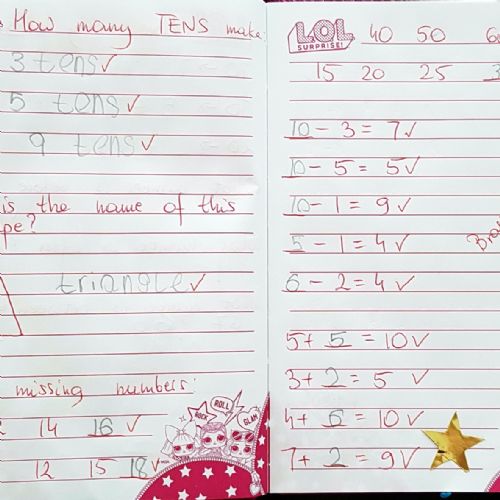 How many TENS make:
3 tens ✓
5 tens ✓
9 tens ✓
is the name of this
pe?
triangle ✓
missing numbers:
14 16 ✓
12 15 18 ✓
ROCK
ROLL
GLAM
LOL
SURPRISE!
40 50 6
15 20 25 3
10 - 3 = 7 ✓
10 - 5 = 5 ✓
10 - 1 = 9 ✓
5 - 1 = 4 ✓
6 - 2 = 4 ✓
Bra
5 + 5 = 10 ✓
3 + 2 = 5 ✓
4 + 6 = 10 ✓
7 + 2 = 9 ✓